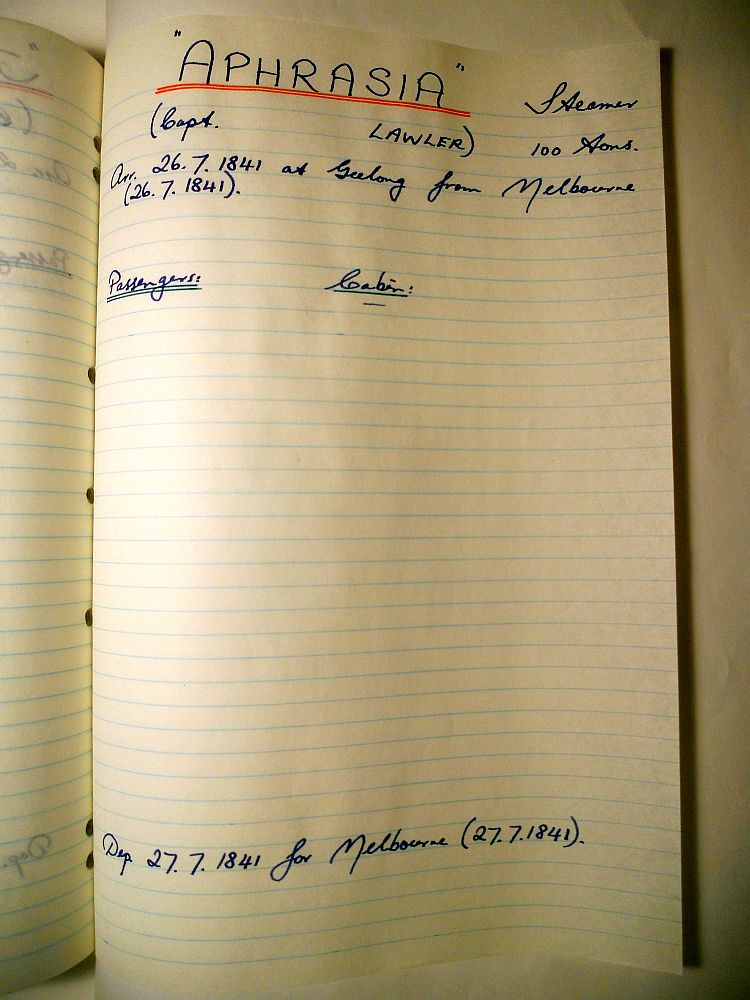 "APHRASIA"
Steamer
(Capt. LAWLER) 100 tons.
Arr. 26.7.1841 at Geelong from Melbourne
(26.7.1841).
Passengers: Cabin:
—
Dep 27.7.1841 for Melbourne (27.7.1841).
Dep.